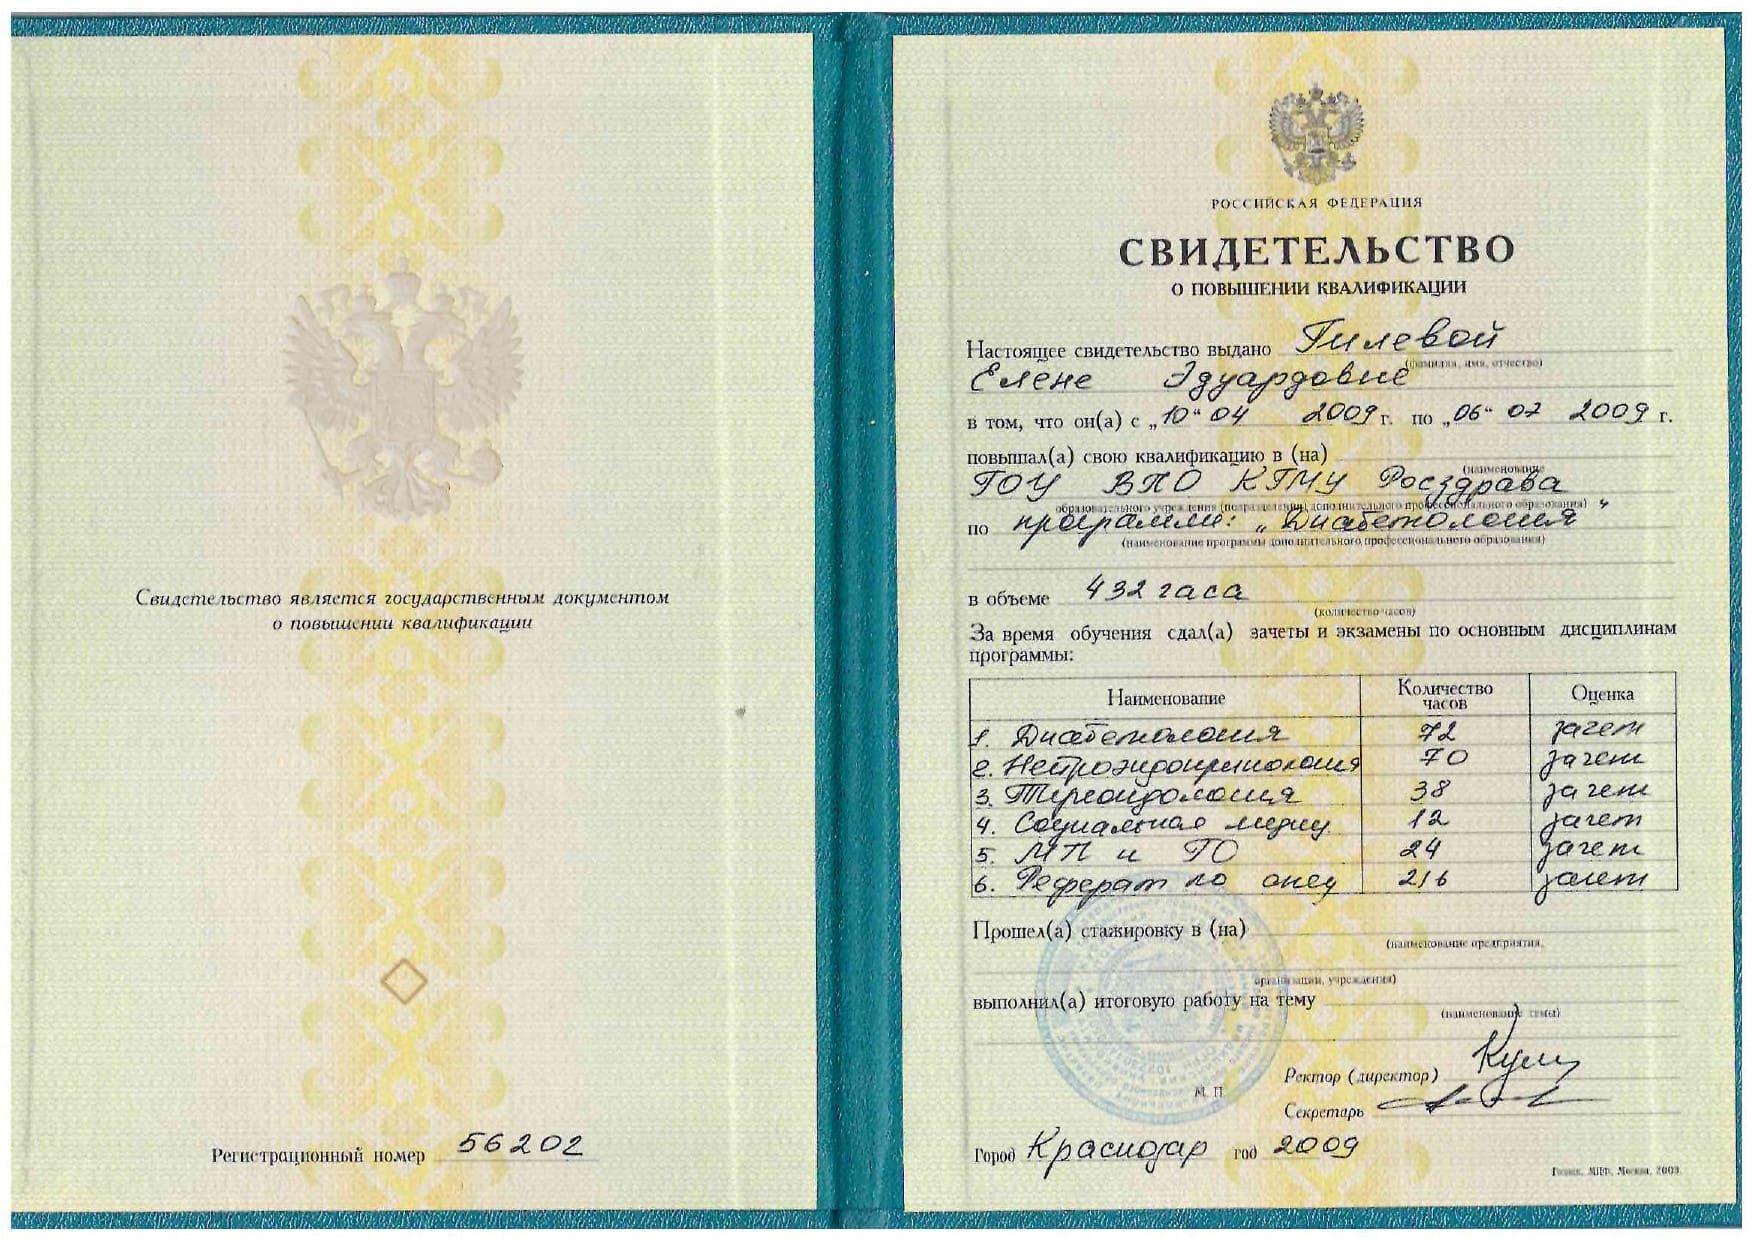 Свидетельство является государственным документом
о повышении квалификации
Регистрационный номер 56202
РОССИЙСКАЯ ФЕДЕРАЦИЯ
СВИДЕТЕЛЬСТВО
О ПОВЫШЕНИИ КВАЛИФИКАЦИИ
Настоящее свидетельство выдано Гилевой
(фамилия, имя, отчество)
Елене Эдуардовне
в том, что он(а) с „10“ 04 2009 г. по „06“ 07 2009 г.
повышал(а) свою квалификацию в (на)
(наименование
ГОУ ВПО КГМУ Росздрава
образовательного учреждения (подразделения) дополнительного профессионального образования)
по программе: „Диабетология“
(наименование программы дополнительного профессионального образования)
в объеме 432 часа
(количество часов)
За время обучения сдал(а) зачеты и экзамены по основным дисциплинам
программы:
Наименование Количество часов Оценка
1. Диабетология 72 зачет
2. Нейроэндокринология 70 зачет
3. Тиреоидология 38 зачет
4. Социальная медиц. 12 зачет
5. МП и ГО 24 зачет
6. Реферат по 216 зачет
Прошел(а) стажировку в (на)
(наименование предприятия,
организации, учреждения)
выполнил(а) итоговую работу на тему
(наименование темы)
Ректор (директор)
М. П.
Секретарь
Город Краснодар год 2009
Гознак, МПФ, Москва, 2009.